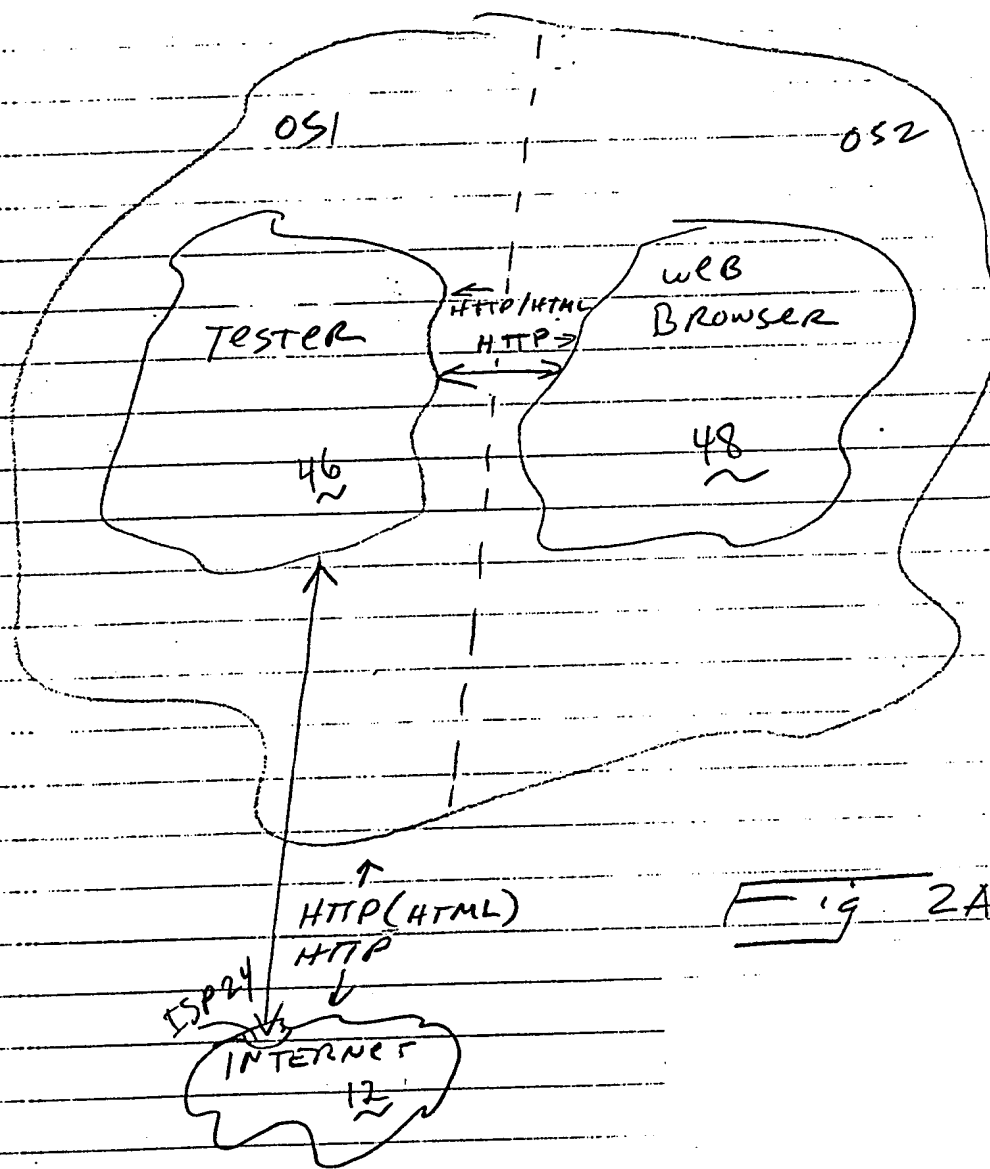 OS1
OS2
TESTER
46
HTTP/HTML
HTTP
WEB
BROWSER
48
HTTP(HTML)
HTTP
Fig 2A
ISP24
INTERNET
12